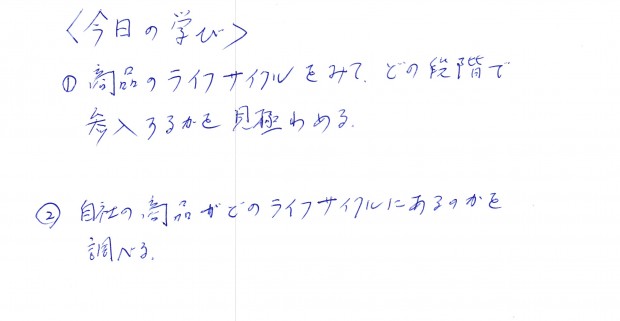 〈今日の学び〉
① 商品のライフサイクルをみて、どの段階で
参入するかを見極わめる。
② 自社の商品がどのライフサイクルにあるのかを
調べる。